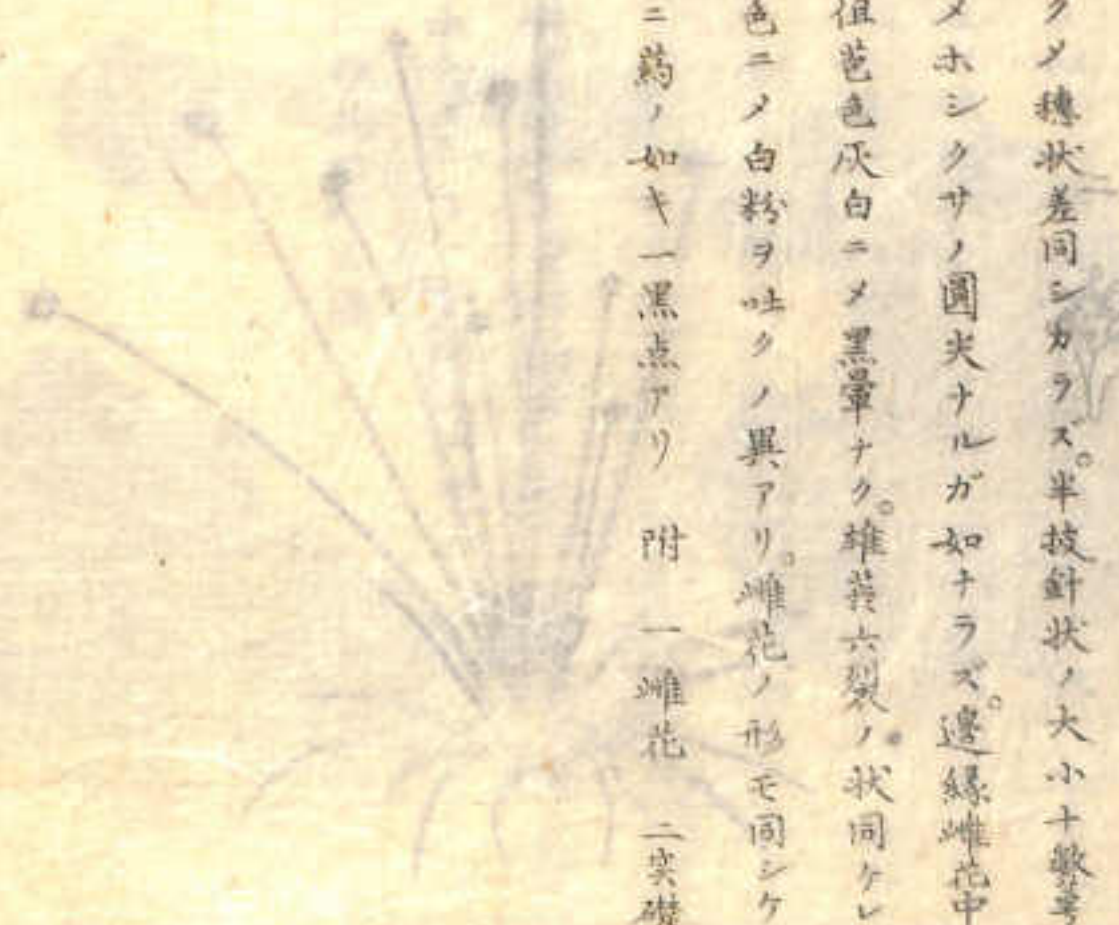 クメ穗状差同シカラズ。半披針状ノ大小十數萼
メホシクサノ圓尖ナルガ如ナラズ。邊縁雌花中
但苞色灰白ニメ黒暈ナク。雄蕋六裂ノ状同ケレ
色ニメ白粉ヲ吐クノ異アリ。雌花ノ形モ同シケ
ニ蒴ノ如キ一黒点アリ 附 一雌花 二实礎